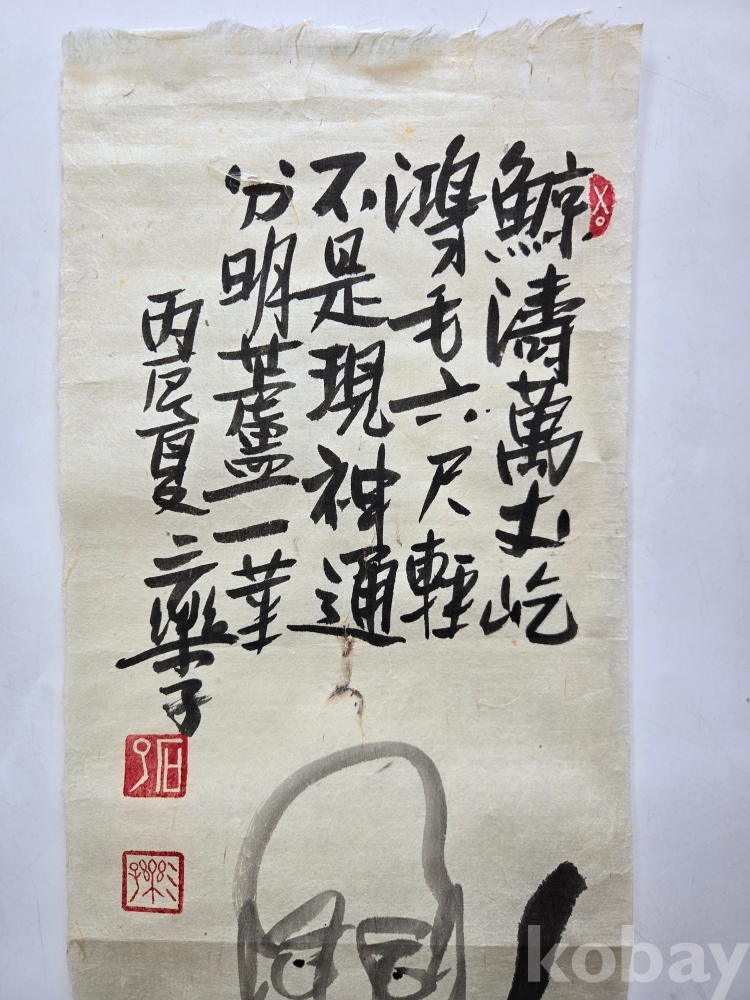 鯨濤萬丈屹
鴻毛六尺輕
不是現神通
分明蘆一葦
丙辰夏 三樂子
kobay